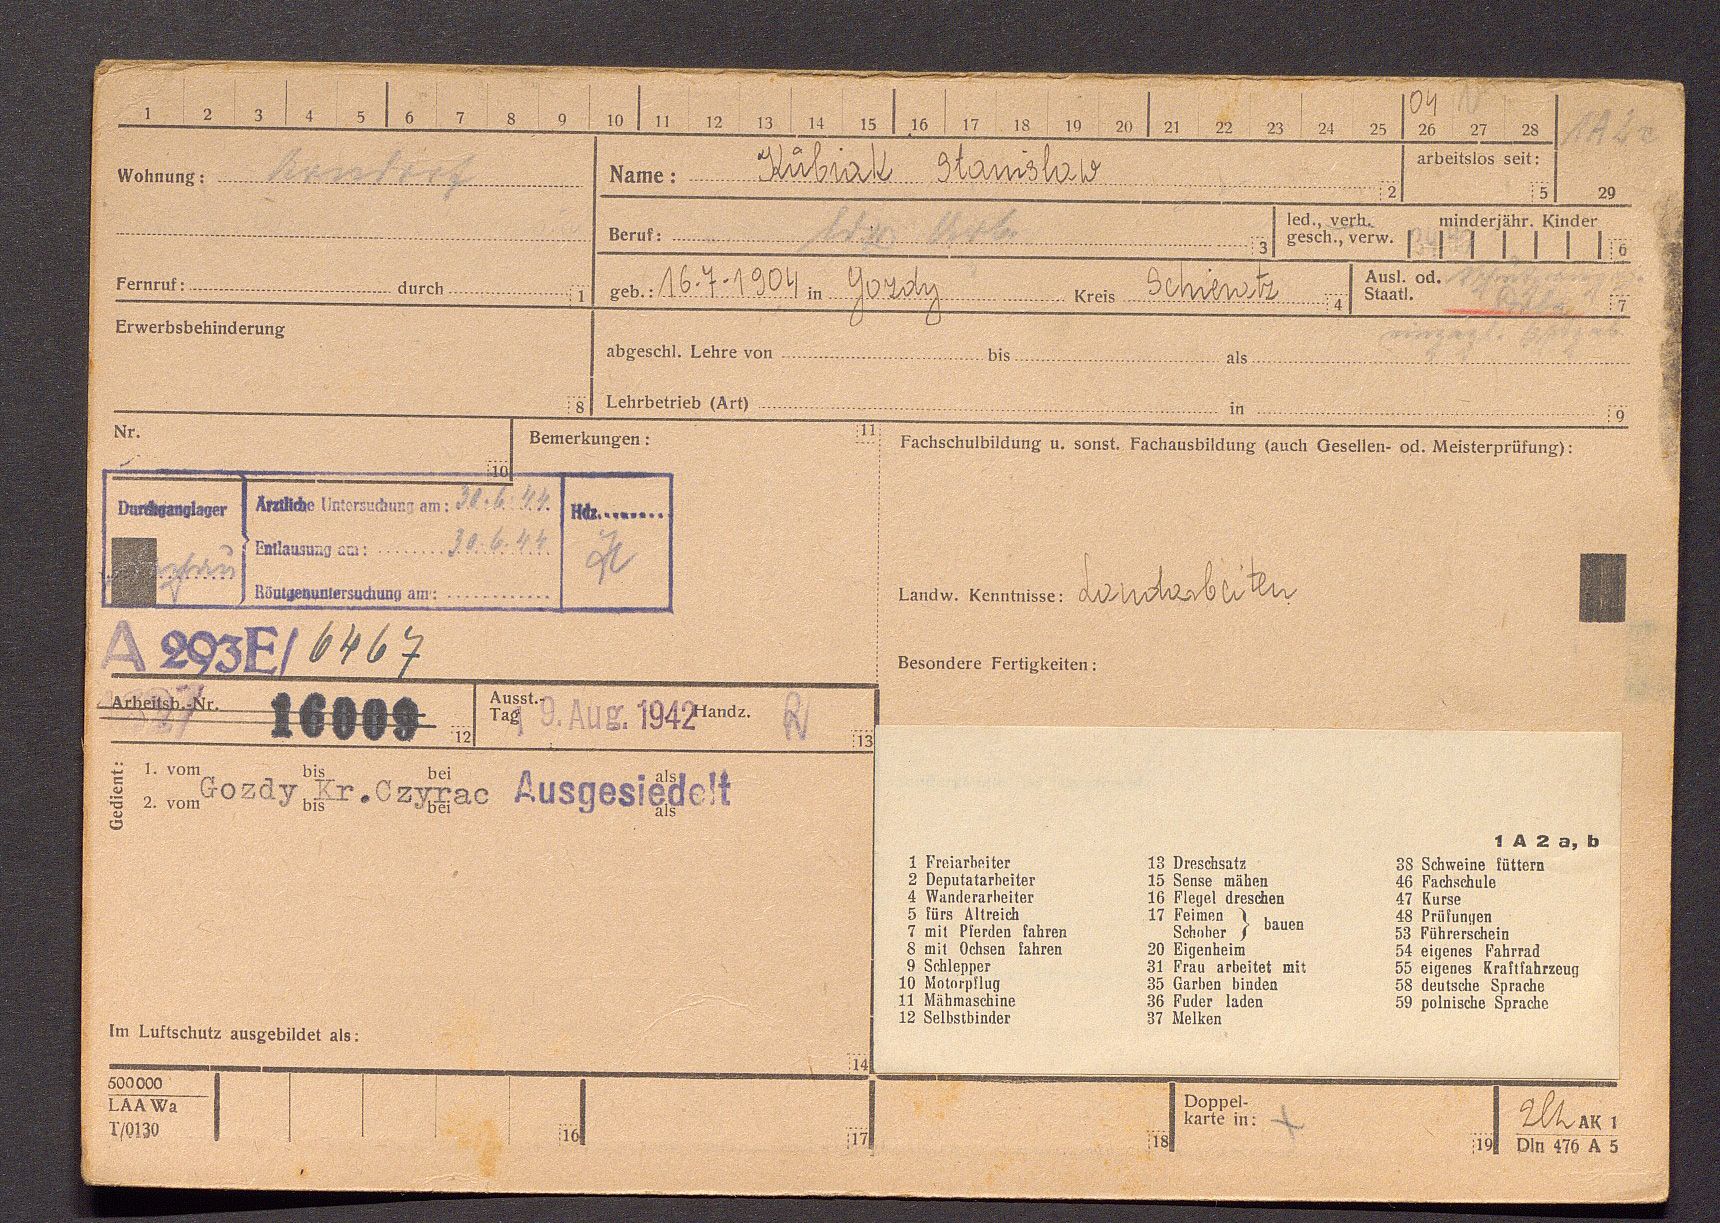 1 2 3 4 5 6 7 8 9 10 11 12 13 14 15 16 17 18 19 20 21 22 23 24 25 26 27 28
04
Wohnung: Arndorf
Name: Kubiak Stanislaw 2
arbeitslos seit: 5
29
Beruf: 3
led., verh.
gesch., verw.
minderjähr. Kinder
6
Fernruf: durch 1
geb.: 16.7.1904 in Gozdy Kreis Schieratz 4
Ausl. od.
Staatl.
7
Erwerbsbehinderung
8
abgeschl. Lehre von bis als
Lehrbetrieb (Art) in 9
Nr.
10
Bemerkungen: 11
Fachschulbildung u. sonst. Fachausbildung (auch Gesellen- od. Meisterprüfung):
Durchganglager
Ärztliche Untersuchung am: 30.6.44.
Entlausung am: 30.6.44
Röntgenuntersuchung am:
Hdz.
Landw. Kenntnisse: Landarbeiten
A 293E/ 6467
Besondere Fertigkeiten:
Arbeitsb.-Nr. 16009 12
Ausst.-
Tag 19. Aug. 1942 Handz. 13
Gedient:
1. vom bis bei als
Gozdy Kr.Czyrac Ausgesiedelt
2. vom bis bei als
1 A 2 a, b
1 Freiarbeiter
2 Deputatarbeiter
4 Wanderarbeiter
5 fürs Altreich
7 mit Pferden fahren
8 mit Ochsen fahren
9 Schlepper
10 Motorpflug
11 Mähmaschine
12 Selbstbinder
13 Dreschsatz
15 Sense mähen
16 Flegel dreschen
17 Feimen } bauen
Schober
20 Eigenheim
31 Frau arbeitet mit
35 Garben binden
36 Fuder laden
37 Melken
38 Schweine füttern
46 Fachschule
47 Kurse
48 Prüfungen
53 Führerschein
54 eigenes Fahrrad
55 eigenes Kraftfahrzeug
58 deutsche Sprache
59 polnische Sprache
Im Luftschutz ausgebildet als:
14
500000
LAA Wa
T/0130
16
17
18
Doppel-
karte in: +
19
AK 1
Din 476 A 5